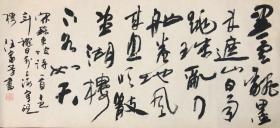 黑雲翻墨
未遮山白雨
跳珠亂入
船卷地風
來忽吹散
望湖樓
下水如天
宋蘇東坡詩一首